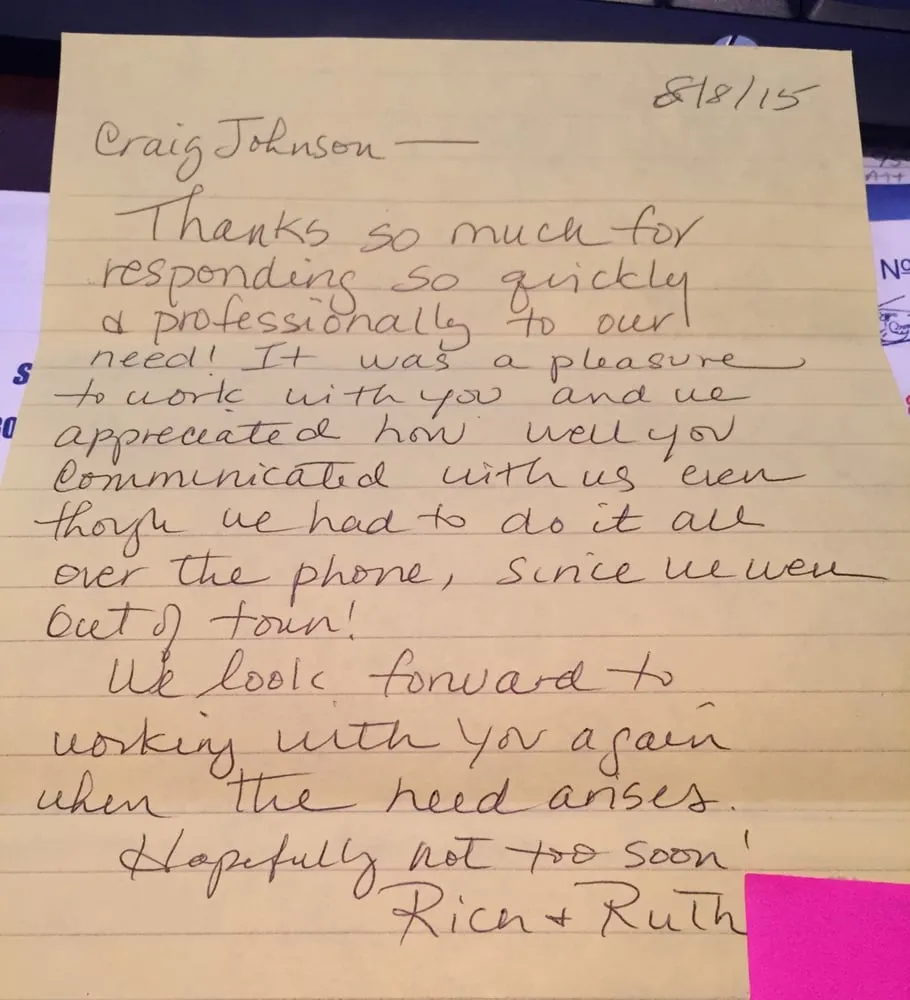 8/8/15
Craig Johnson —
Thanks so much for
responding so quickly
& professionally to our
need! It was a pleasure
to work with you and we
appreciated how well you
communicated with us even
though we had to do it all
over the phone, since we were
out of town!
We look forward to
working with you again
when the need arises.
Hopefully not too soon!
Rich + Ruth
No
S